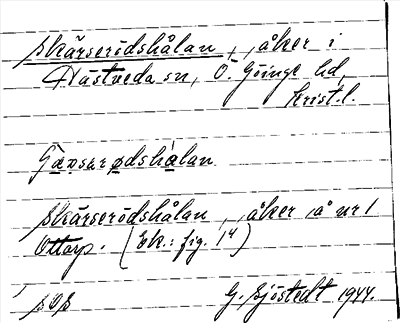 Skärserödshålan, åker i
Hästveda sn, Ö. Göinge hd,
Krist. l.
Skärserödshålan, åker å nr 1
Ottarp. (Ek.: fig. 14)
G. Sjöstedt 1944.